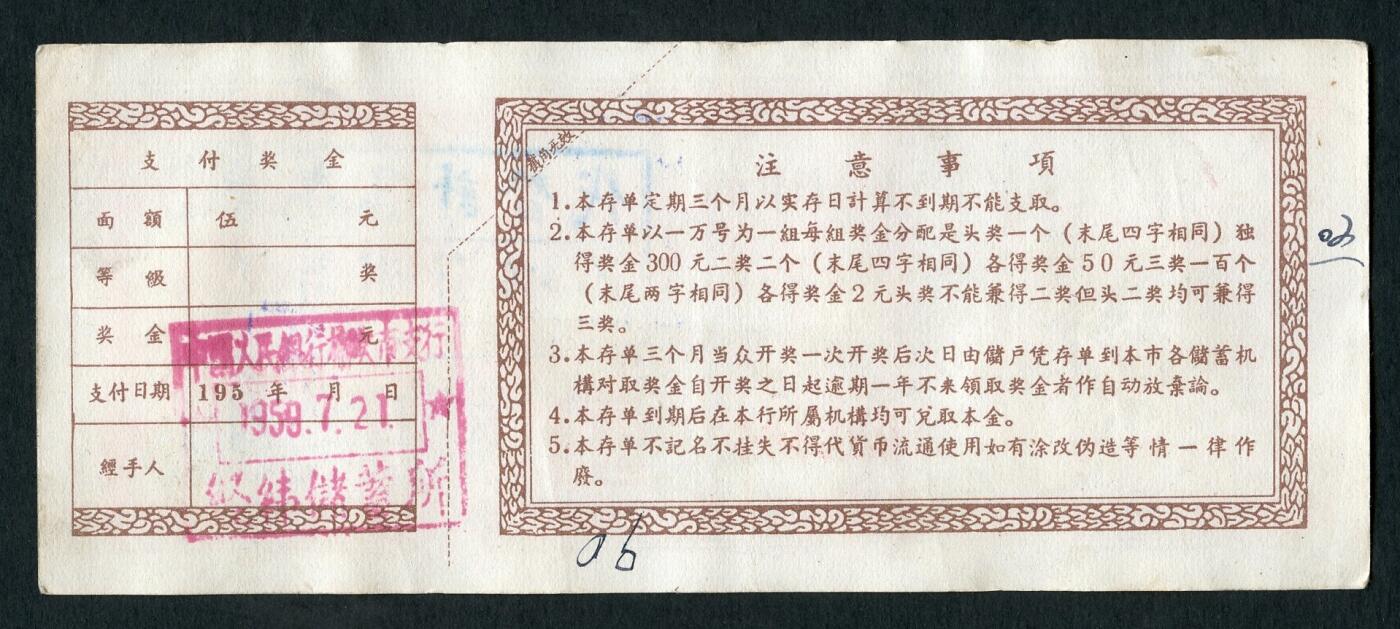 支付奖金
面額 伍 元
等級 奖
奖金 元
支付日期 195 年 月 日
經手人
1959.7.21.
經緯儲蓄所
注意事項
1.本存单定期三个月以实存日計算不到期不能支取。
2.本存单以一万号为一組每組奖金分配是头奖一个（末尾四字相同）独
得奖金300元二奖二个（末尾四字相同）各得奖金50元三奖一百个
（末尾两字相同）各得奖金2元头奖不能兼得二奖但头二奖均可兼得
三奖。
3.本存单三个月当众开奖一次开奖后次日由儲戶凭存单到本市各儲蓄机
構对取奖金自开奖之日起逾期一年不来領取奖金者作自动放棄論。
4.本存单到期后在本行所屬机構均可兌取本金。
5.本存单不記名不挂失不得代貨币流通使用如有涂改伪造等情一律作
廢。
06